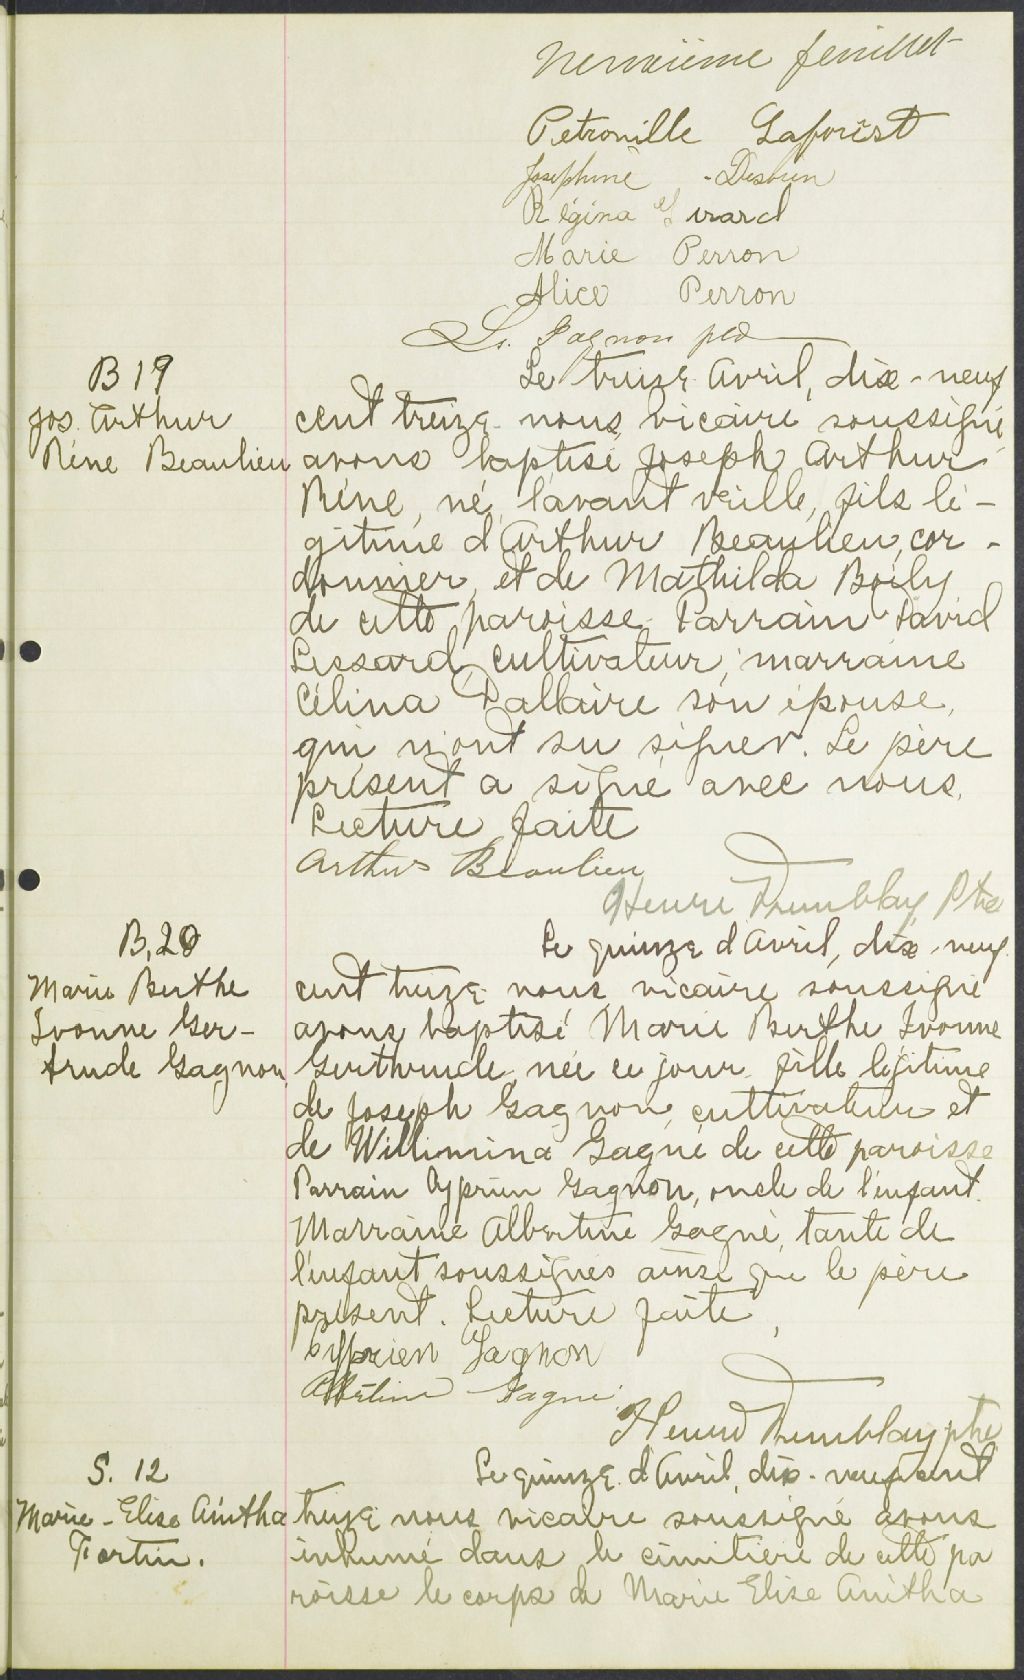 Neuvième feuillet
Petronille Laforest
Josephine
Régina Girard
Marie Perron
Alice Perron
Ls. Gagnon ptre
B 19
Jos. Arthur
Réne Beaulieu
Le treize Avril, dix-neuf
cent treize nous, vicaire soussigné
avons baptisé Joseph Arthur
Réne, né l'avant veille, fils lé-
gitime d'Arthur Beaulieu, cor-
donnier, et de Mathilda Boily
de cette paroisse. Parrain David
Lessard, cultivateur; marraine
Célina Dallaire son épouse,
qui n'ont su signer. Le père
présent a signé avec nous.
Lecture faite
Arthur Beaulieu
Henri Tremblay Ptre
B. 20
Marie Berthe
Ivonne Ger-
trude Gagnon
Le quinze d'Avril, dix-neuf
cent treize nous vicaire soussigné
avons baptisé Marie Berthe Ivonne
Gerthrude, née ce jour, fille légitime
de Joseph Gagnon, cultivateur et
de Willimina Gagné de cette paroisse
Parrain Cyprien Gagnon, oncle de l'enfant.
Marraine Albertine Gagné, tante de
l'enfant soussignés ainsi que le père
présent. Lecture faite,
Cyprien Gagnon
Albertine Gagné
Henri Tremblay ptre
S. 12
Marie-Elise Anitha
Fortin.
Le quinze d'Avril, dix-neuf cent
treize nous vicaire soussigné avons
inhumé dans le cimitière de cette pa
roisse le corps de Marie Elise Anitha